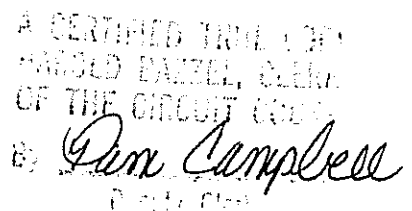 A CERTIFIED TRUE COPY
HAROLD BAZZEL, CLERK
OF THE CIRCUIT COURT
BY Pam Campbell
Deputy Clerk